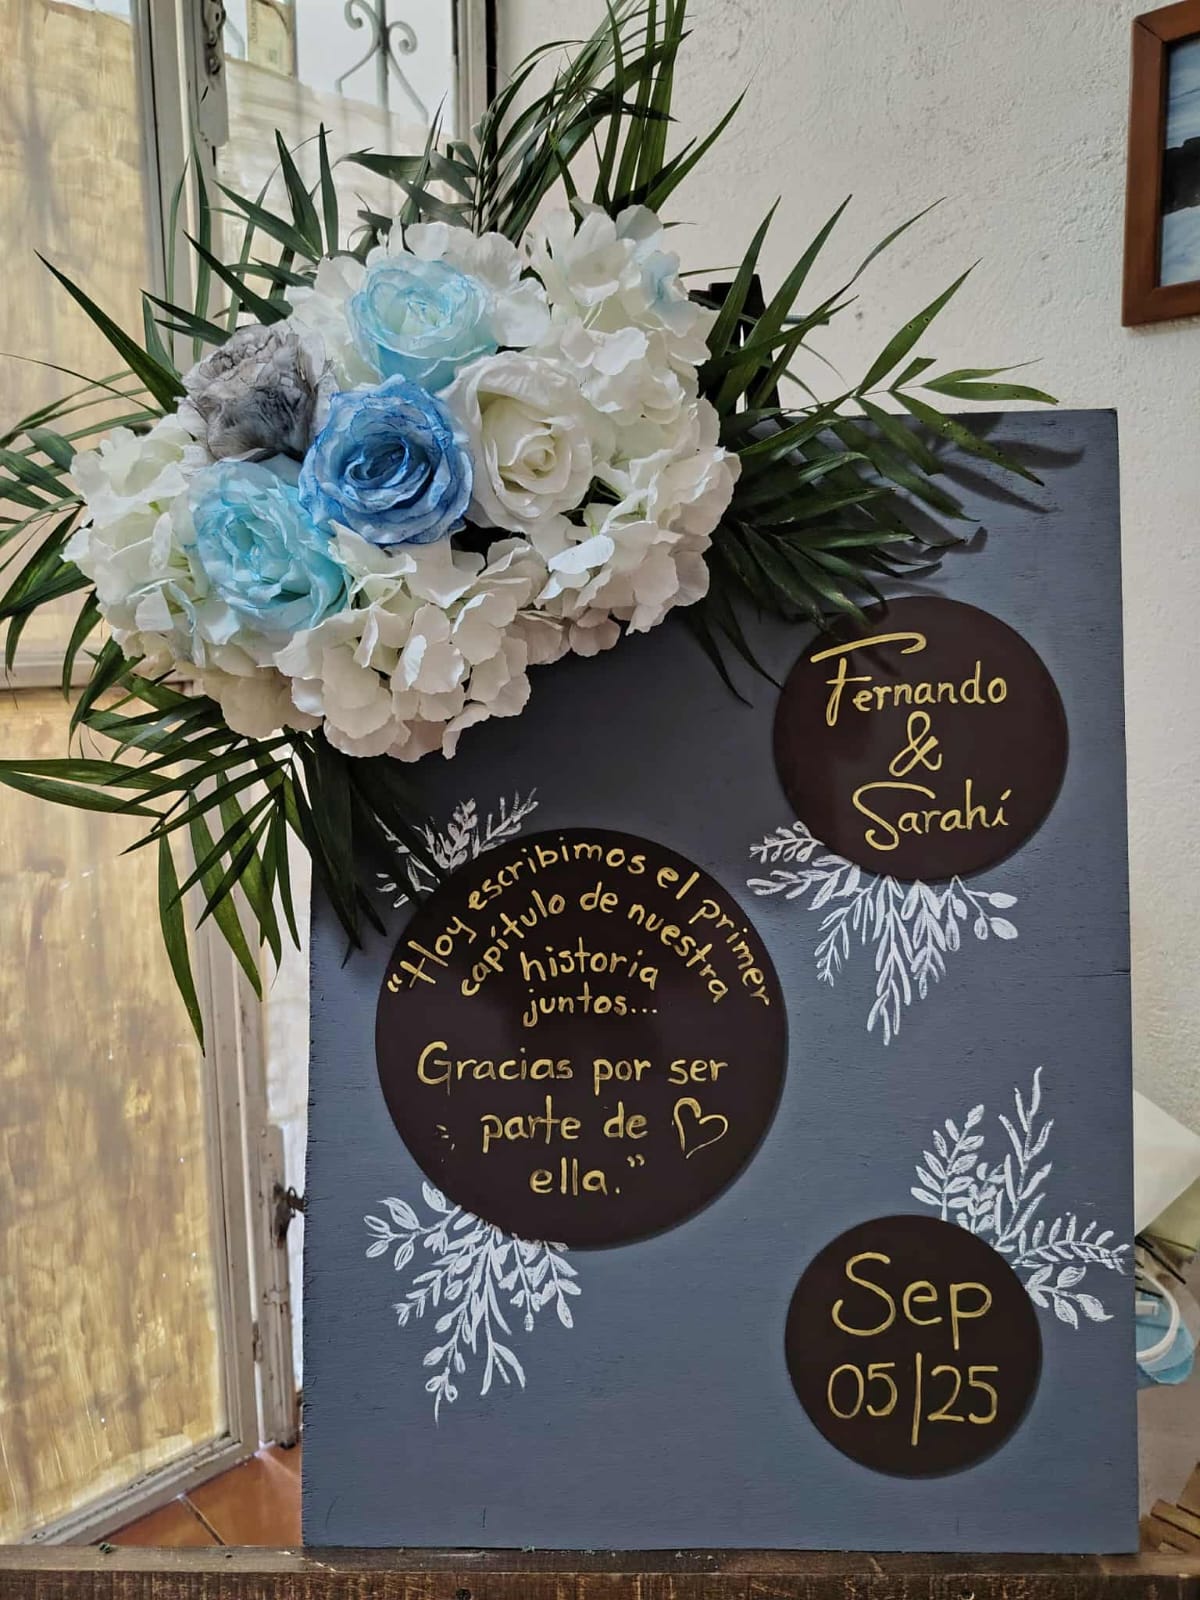 Fernando
&
Sarahí
“Hoy escribimos el primer
capítulo de nuestra
historia
juntos...
Gracias por ser
parte de
ella.”
Sep
05|25